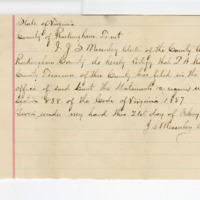 State of Virginia
County of Rockingham To wit
I, J. S. Messerley Clerk of the County
Rockingham County do hereby certify that
County Treasurer of this County has filed in the
office of said Court the Statements required
Section 838 of the Code of Virginia 1887
Given under my hand this 21st day of
J. S. Messerley